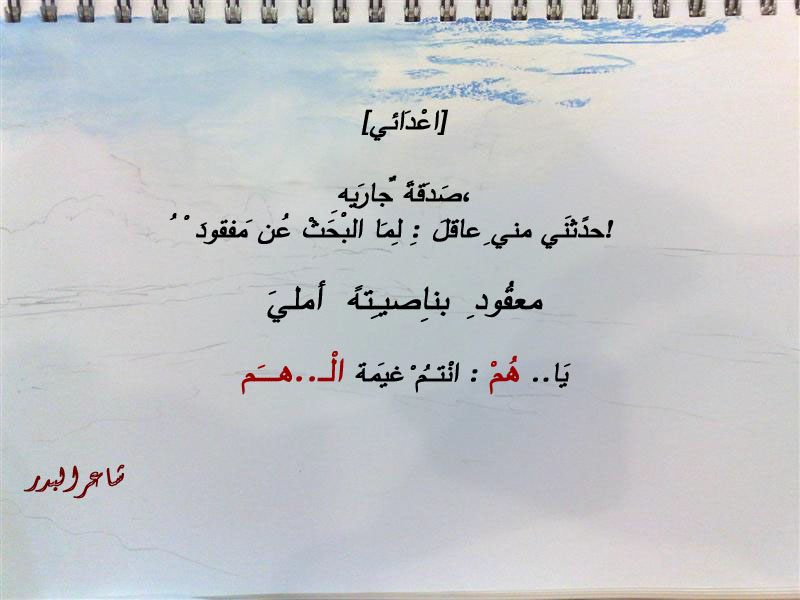 [اعْدَائي]
صَدَقةَ ًجارَيَه،
حدًثنَي مني ِعاقلَ : ِلِمَا البْحَثْ عُن مَفقودَ ْ ُ!
معقُود ِ بناِصيـِتهً أمليَ
يَا.. هُمْ : انْتـمُ ْغيَمة الْـ..هـــَم
شاعر البدر